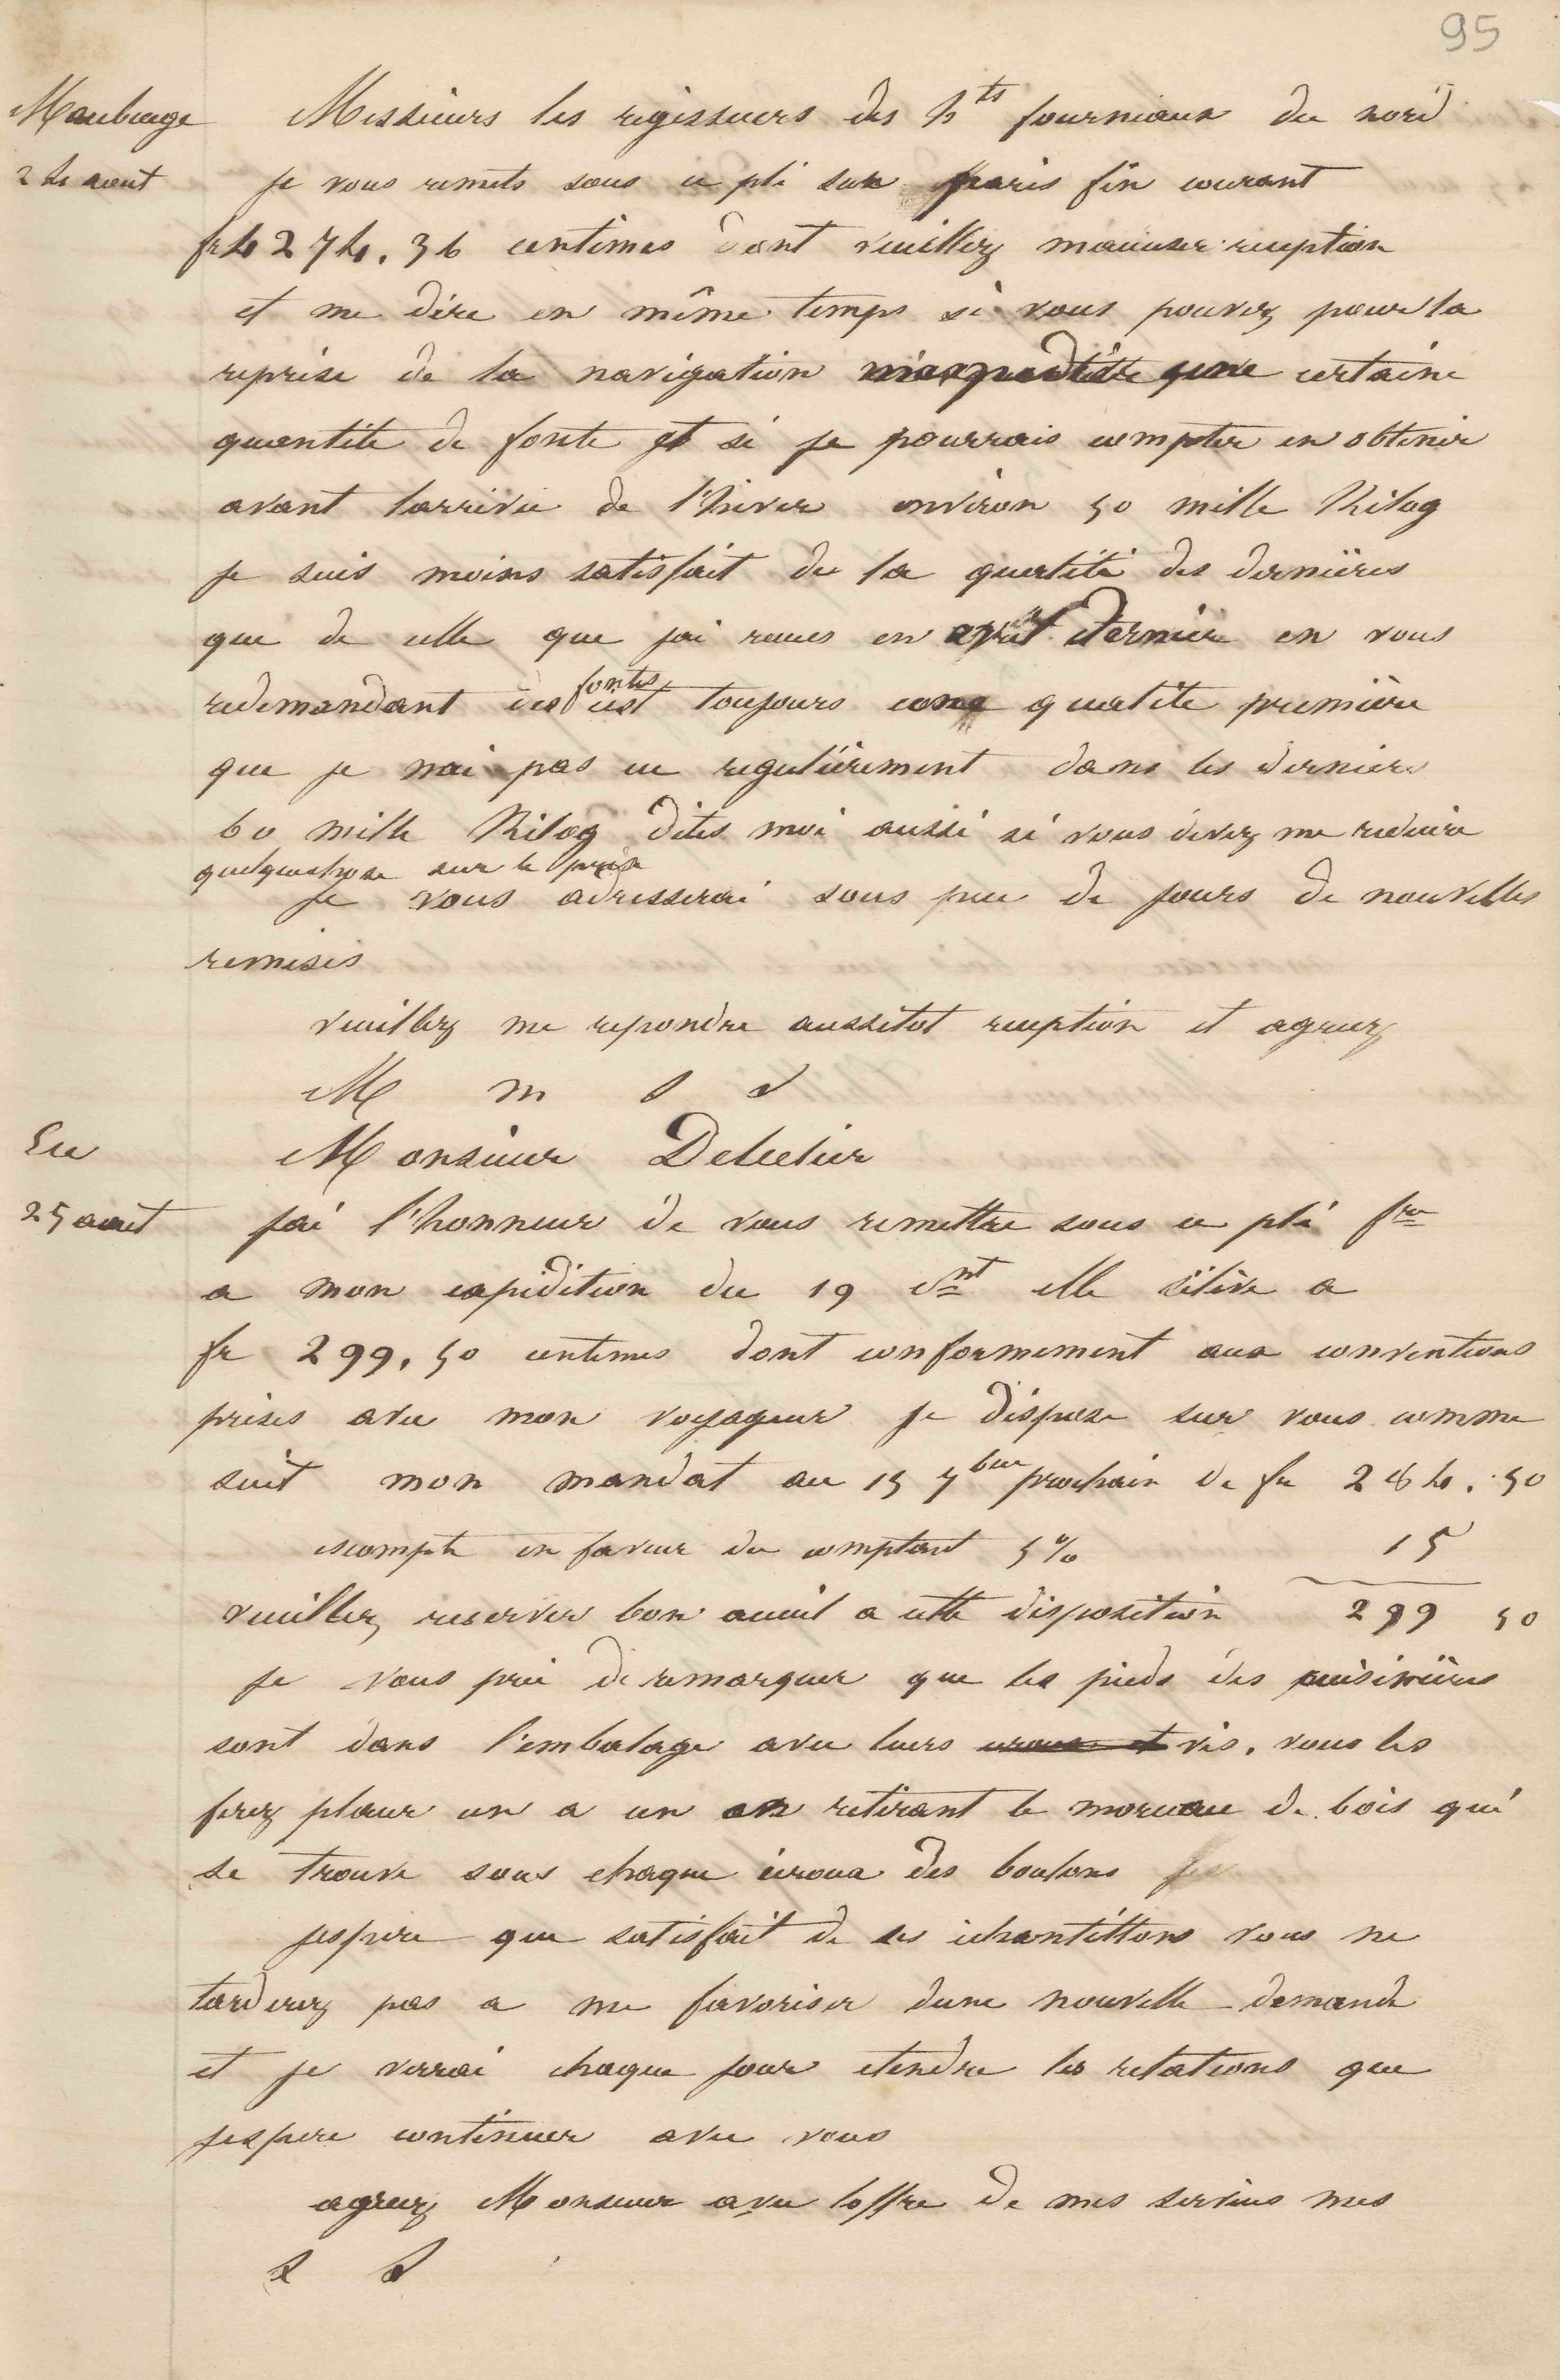 95
Maubeuge Messieurs les regisseurs des hts fourneaux du nord
24 aout je vous remets sous ce pli sur paris fin courant
fr 4274.36 centimes dont veuillez m'accuser reception
et me dire en même temps si vous pouvez pour la
reprise de la navigation m'expedier une certaine
quantite de fonte et si je pourrais compter en obtenir
avant larrivée de l'hiver environ 50 mille Kilog
je suis moins satisfait de la qualité des dernières
que de celle que jai recues en avril dernier en vous
redemandant des fontes cest toujours come qualite première
que je nai pas eu regulièrement dans les derniers
60 mille Kilog dites moi aussi si vous devez me reduire
quelquechose sur le prix
je vous adresserai sous peu de jours de nouvelles
remises
veuillez me repondre aussitot reception et agreez
M m s d
Eu Monsieur Deletier
25 aout jai l'honneur de vous remettre sous ce pli fre
a mon expidition du 19 ct elle s'élève a
fr 299.50 centimes dont conformement aux conventions
prises avec mon voyageur je dispose sur vous comme
suit mon mandat au 15 7bre prochain de fr 284.50
escompte en faveur du comptant 5% 15
veuillez reserver bon acueil a cette disposition 299 50
je vous prie de remarquer que les pieds des cuisinières
sont dans l'embalage avec leurs ecrous et vis. vous les
ferez placer un a un en retirant le morceau de bois qui
se trouve sous chaque écroux des boulons
jespere que satisfait de ces échantillons vous ne
tarderez pas a me favoriser dune nouvelle demande
et je verrai chaque jour etendre les relations que
jespere continuer avec vous
agreez Monsieur avec loffre de mes services mes
s d